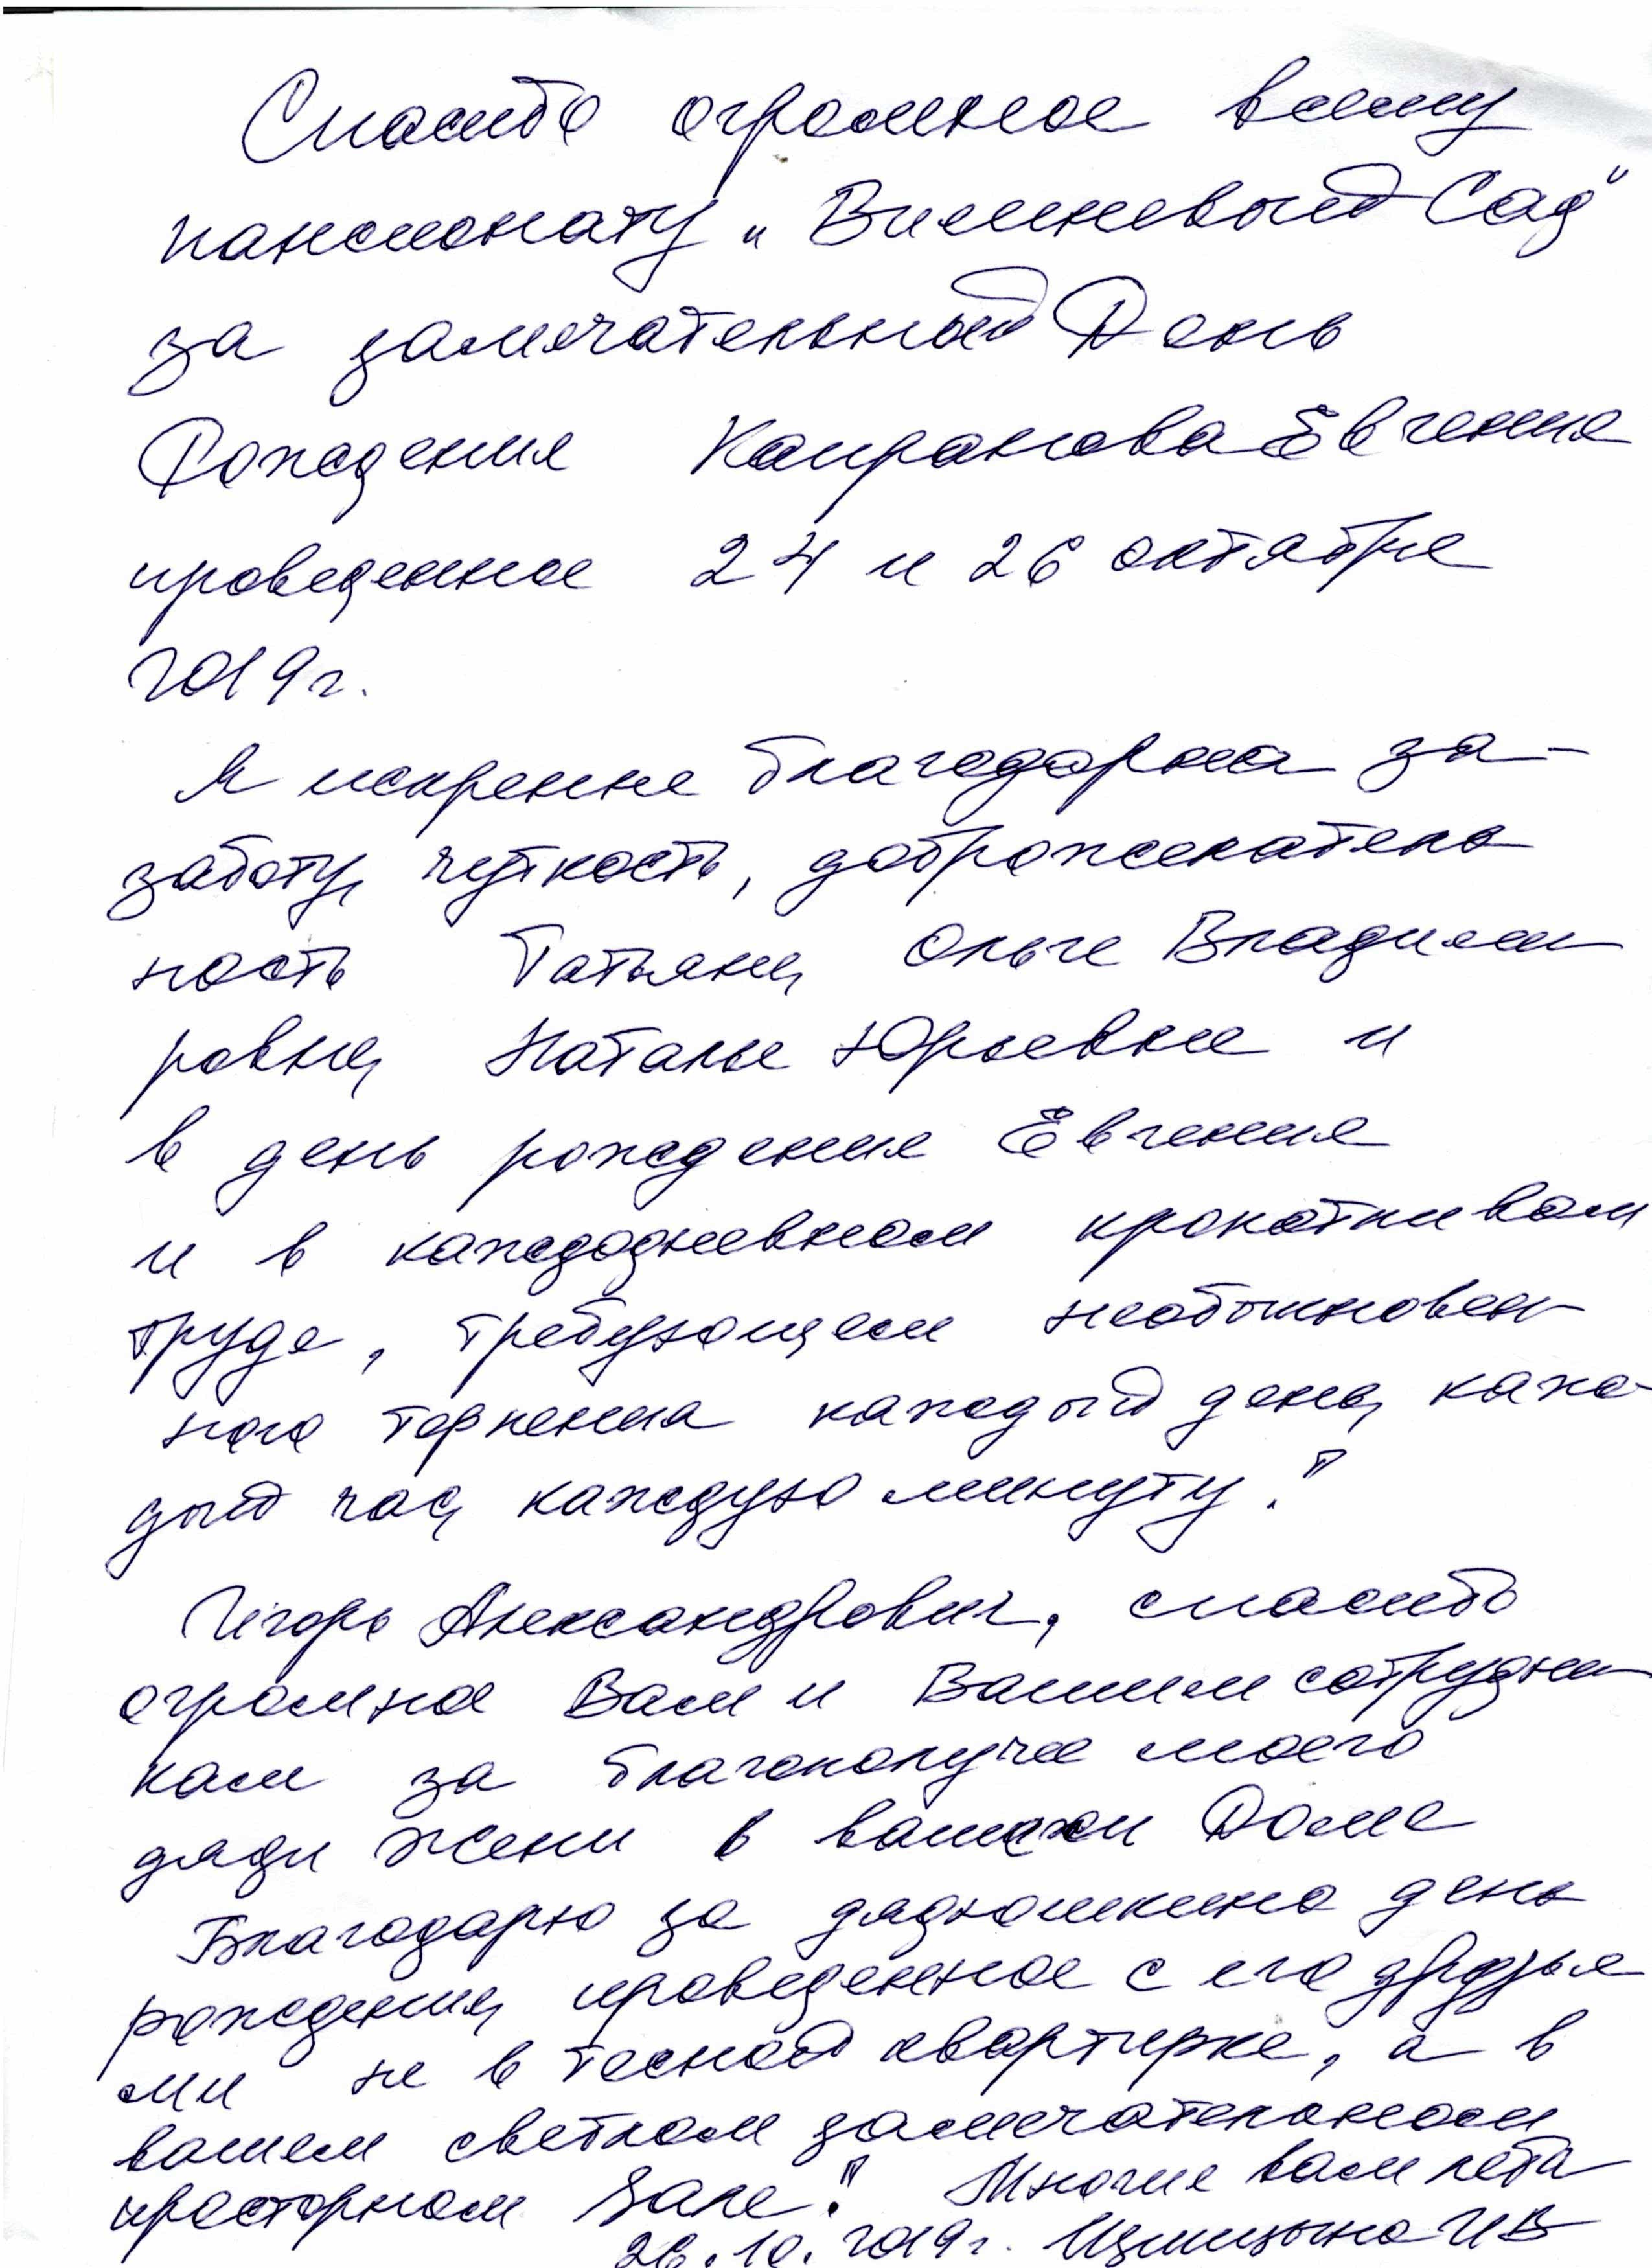 Спасибо огромное всему
пансионату „Вишневый Сад"
за замечательный День
Рождения Капранова Евгения
проведенное 24 и 26 октября
2019 г.
Я искренне благодарна за-
заботу, чуткость, доброжелатель
ность Татьяне, Ольге Владими
ровне, Наталье Юрьевне и
в день рождения Евгения
и в каждодневном кропотливом
труде, требующем необыкновен
ного терпения каждый день, каж-
дый час, каждую минуту!
Игорь Александрович, спасибо
огромное Вам и Вашим сотрудни
кам за благополучие моего
дяди Жени в вашем Доме
Благодарю за дядюшкино день
рождения, проведенное с его друзья
ми не в тесной квартирке, а в
вашем светлом замечательном
просторном Зале! Многие вам лета
26.10.2019 г. ИВ